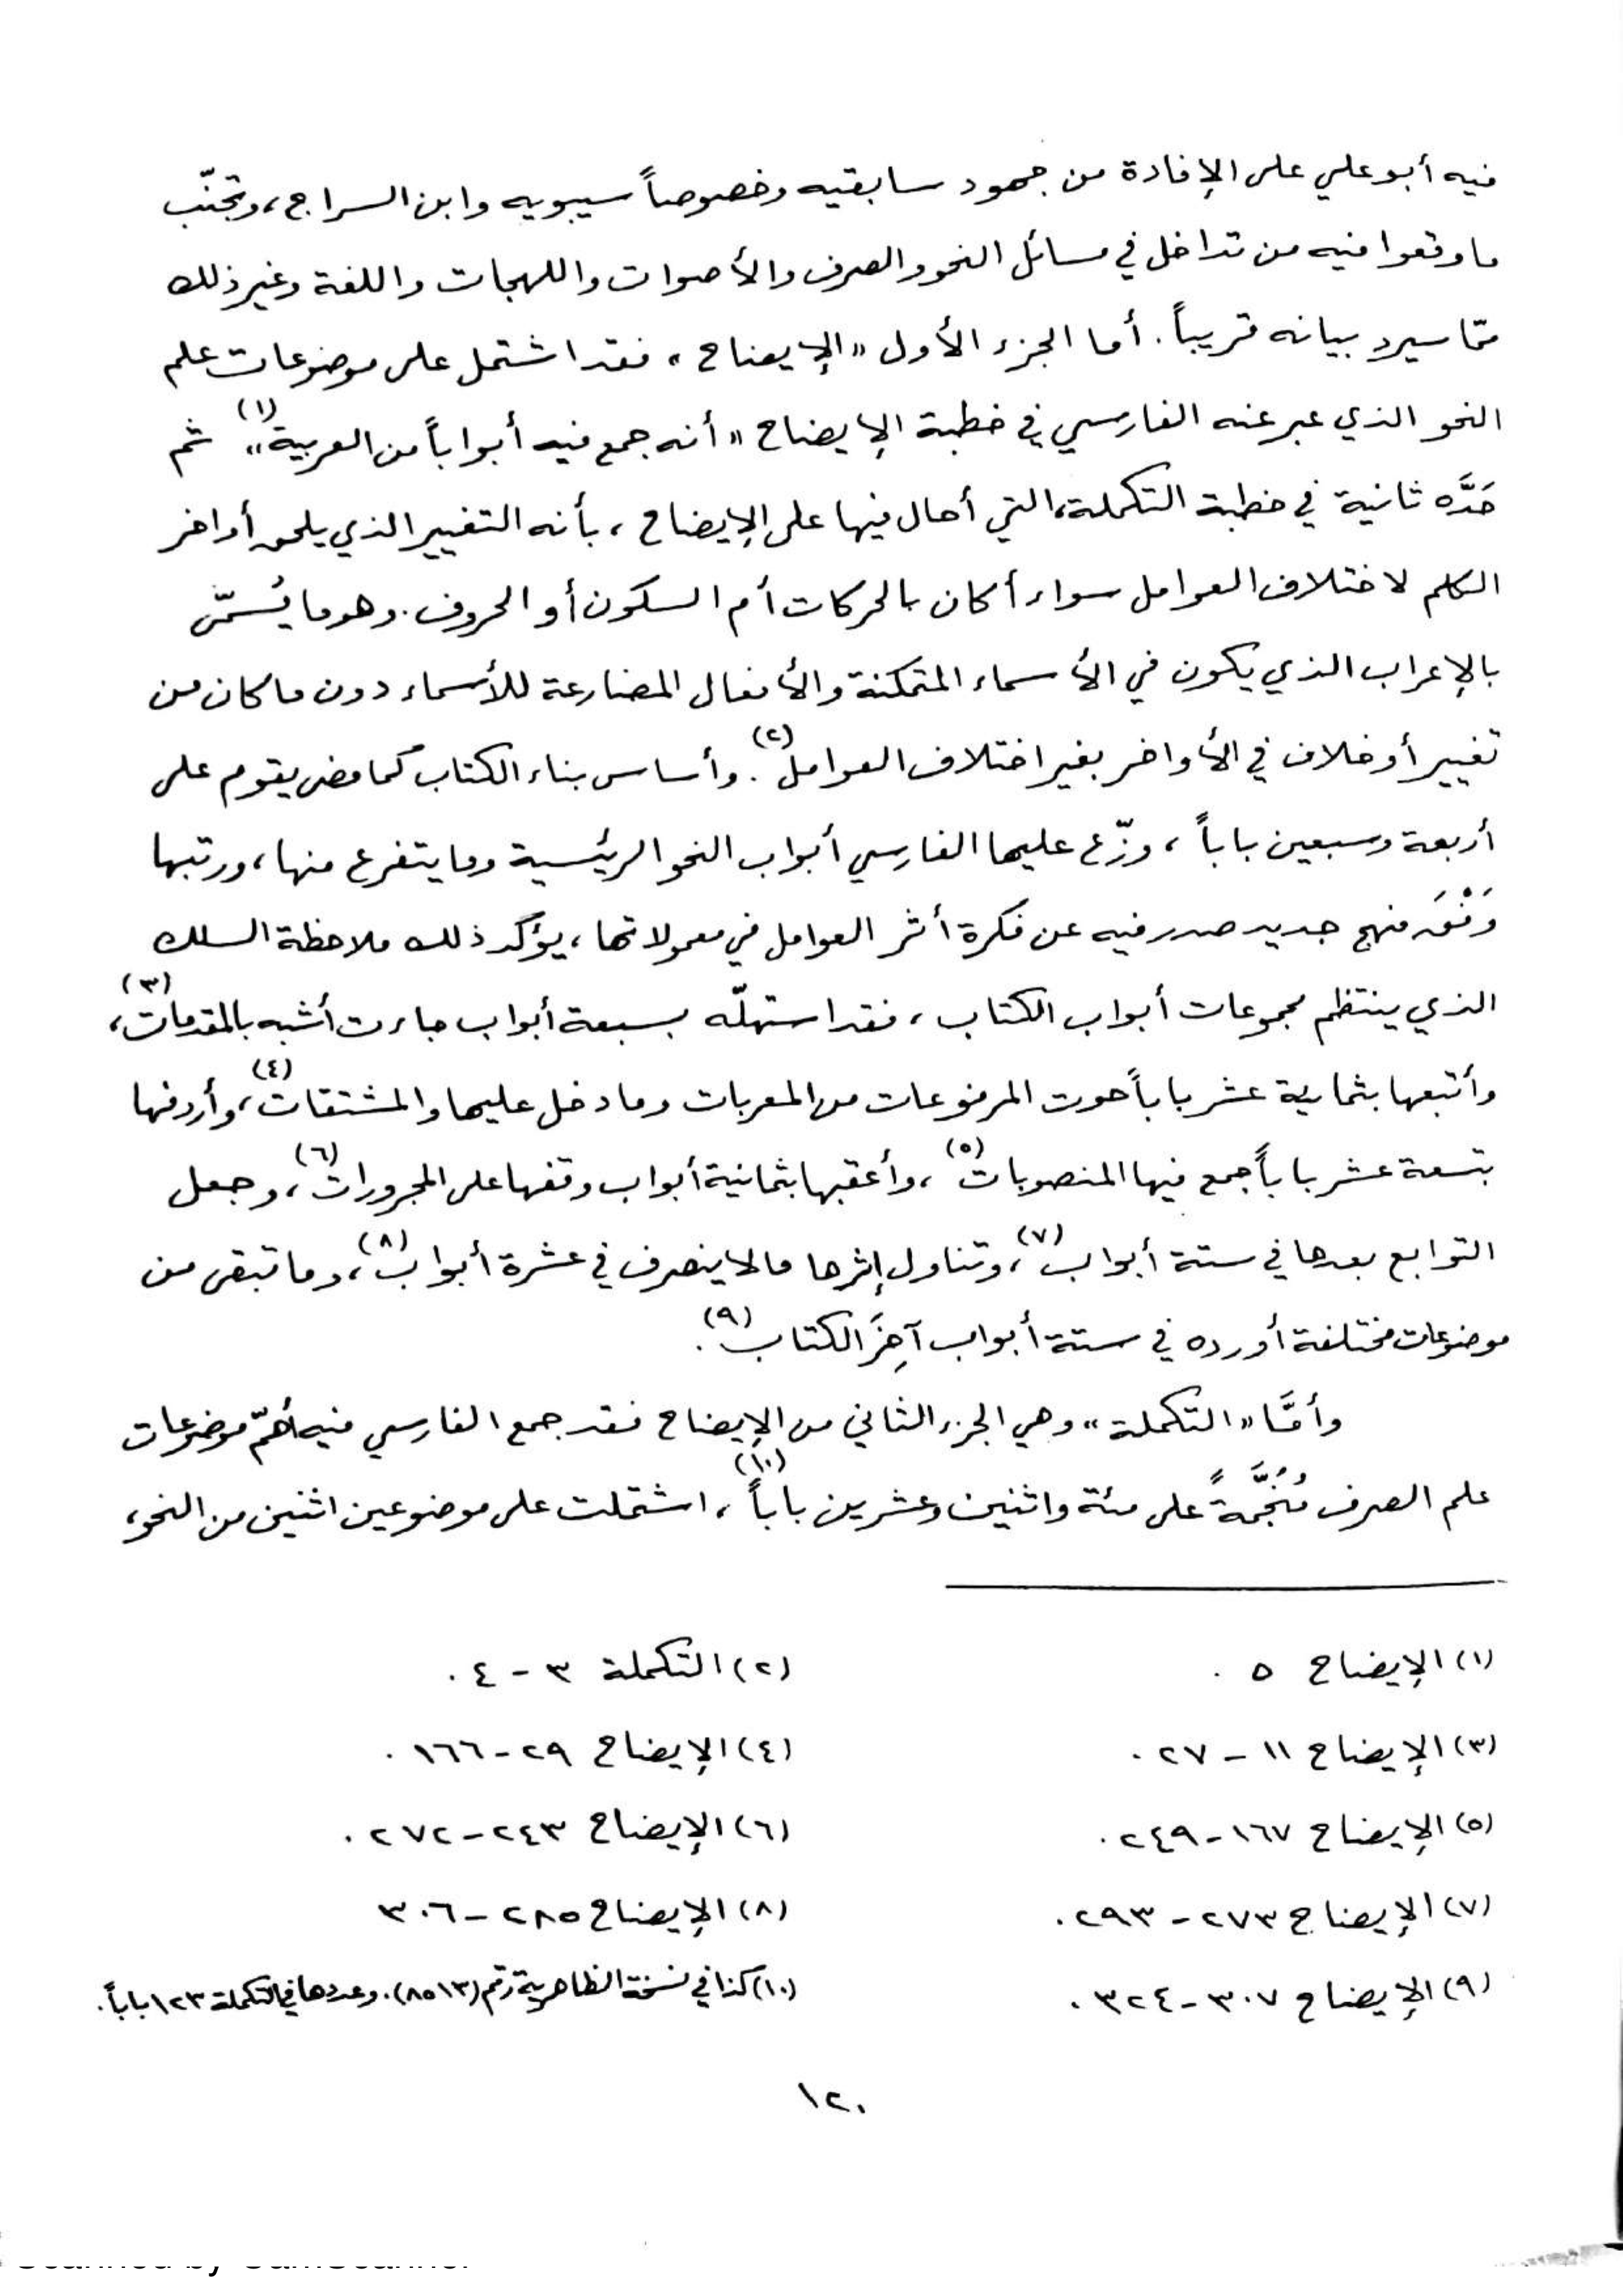 فيه أبو علي على الإفادة من جهود سابقيه وخصوصاً سيبويه وابن السراج، وتجنّب
ما وقعوا فيه من تداخل في مسائل النحو والصرف والأصوات واللهجات واللغة وغير ذلك
ممّا سيرد بيانه قريباً. أما الجزء الأول «الإيضاح» فقد اشتمل على موضوعات علم
النحو الذي عبر عنه الفارسي في خطبة الإيضاح «أنه جمع فيه أبواباً من العربية»(١) ثم
حَدَّه ثانية في خطبة التكملة، التي أحال فيها على الإيضاح، بأنه التغيير الذي يلحق أواخر
الكلم لاختلاف العوامل سواء أكان بالحركات أم السكون أو الحروف. وهو ما يُسمّى
بالإعراب الذي يكون في الأسماء المتمكنة والأفعال المضارعة للأسماء دون ما كان من
تغيير أو خلاف في الأواخر بغير اختلاف العوامل(٢). وأساس بناء الكتاب كما مضى يقوم على
أربعة وسبعين باباً، وزّع عليها الفارسي أبواب النحو الرئيسية وما يتفرع منها، ورتبها
وَفْقَ منهج جديد صدر فيه عن فكرة أثر العوامل في معمولاتها، يؤكد ذلك ملاحظة السلك
الذي ينتظم مجموعات أبواب الكتاب، فقد استهلّه بسبعة أبواب جاءت أشبه بالمقدمات(٣)،
وأتبعها بثمانية عشر باباً حوت المرفوعات من المعربات وما دخل عليها والمشتقات(٤)، وأردفها
بتسعة عشر باباً جمع فيها المنصوبات(٥)، وأعقبها بثمانية أبواب وقفها على المجرورات(٦)، وجعل
التوابع بعدها في ستة أبواب(٧)، وتناول إثرها ما لا ينصرف في عشرة أبواب(٨)، وما تبقى من
موضوعات مختلفة أورده في ستة أبواب آخِرَ الكتاب(٩).
وأمَّا «التكملة» وهي الجزء الثاني من الإيضاح فقد جمع الفارسي فيه أهمّ موضوعات
علم الصرف مُنَجَّمةً على مئة واثنين وعشرين باباً(١٠)، اشتملت على موضوعين اثنين من النحو،
(١) الإيضاح ٥. (٢) التكملة ٣ - ٤.
(٣) الإيضاح ١١ - ٢٧. (٤) الإيضاح ٢٩ - ١٦٦.
(٥) الإيضاح ١٦٧ - ٢٤٩. (٦) الإيضاح ٢٤٣ - ٢٧٢.
(٧) الإيضاح ٢٧٣ - ٢٩٣. (٨) الإيضاح ٢٨٥ - ٣٠٦
(٩) الإيضاح ٣٠٧ - ٣٢٤. (١٠) كذا في نسخة الظاهرية رقم (٨٥١٣). وعددها في التكملة ١٢٣ باباً.
١٢٠